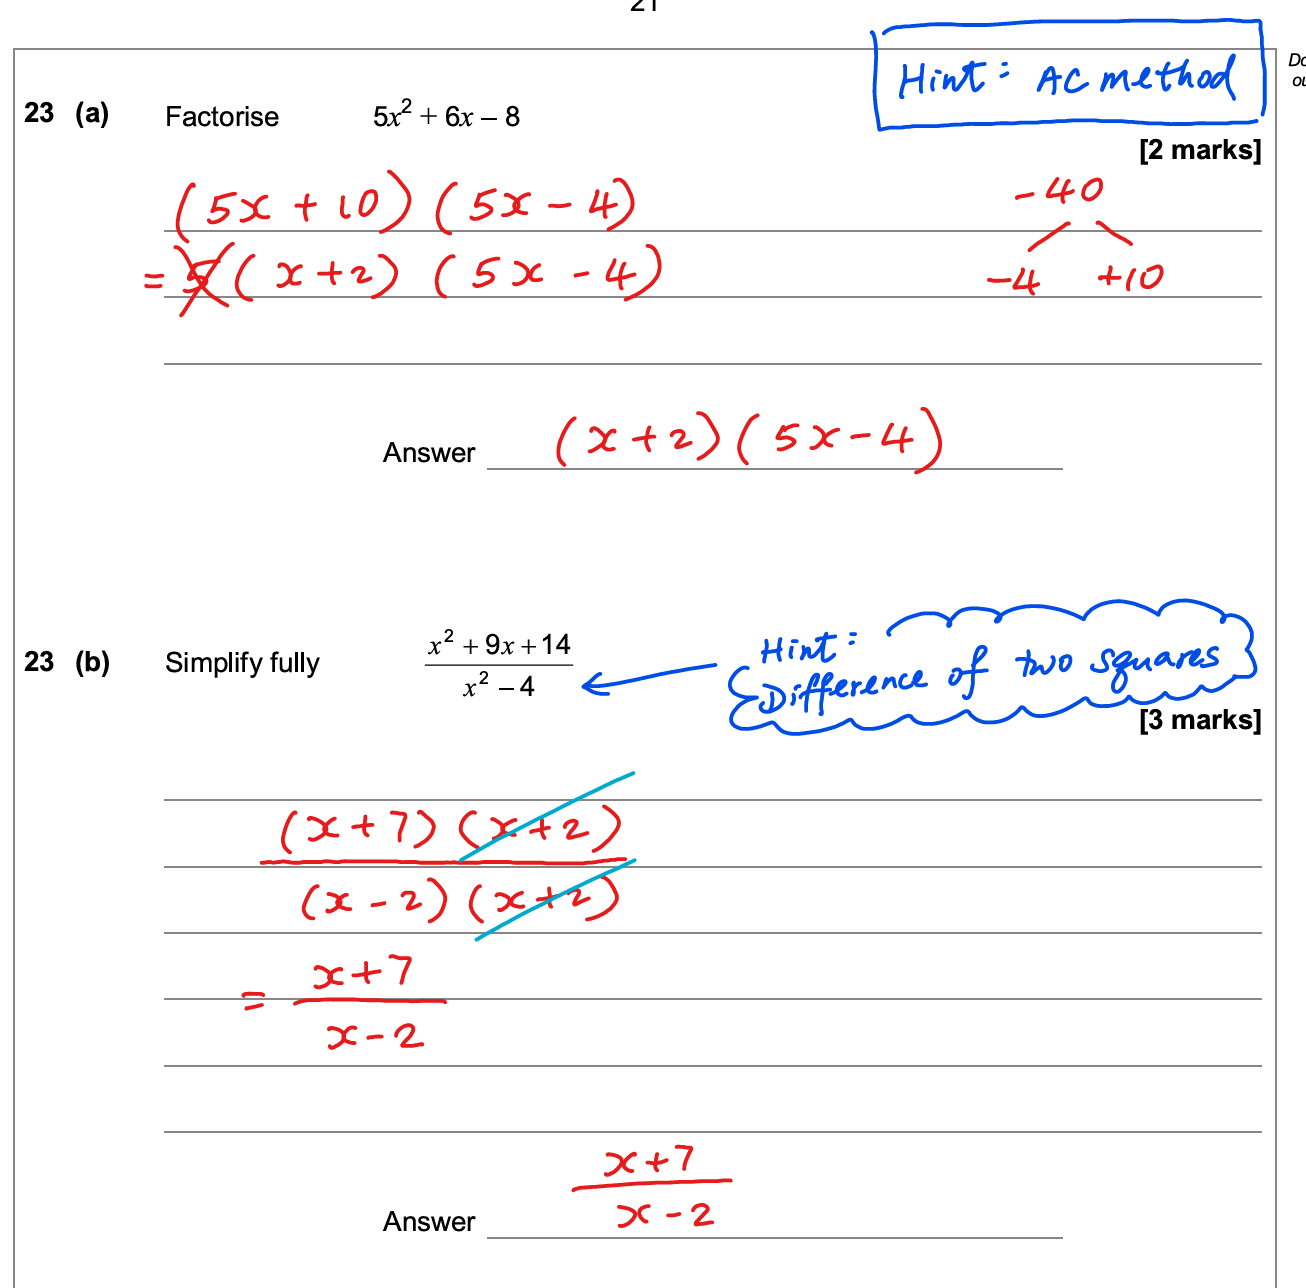 21
Hint: AC method
Do
ou
23 (a) Factorise 5x² + 6x – 8
[2 marks]
(5x + 10) (5x - 4)
-40
= 5 (x+2) (5x - 4)
-4 +10
Answer (x+2)(5x-4)
23 (b) Simplify fully x² + 9x + 14
x² – 4
Hint:
Difference of two squares
[3 marks]
(x+7) (x+2)
(x-2) (x+2)
= x+7
x-2
x+7
Answer x-2